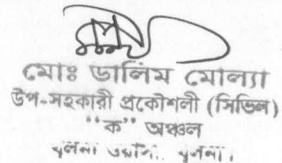 মোঃ ডালিম মোল্যা
উপ-সহকারী প্রকৌশলী (সিভিল)
"ক" অঞ্চল
খুলনা ওয়াসা, খুলনা।